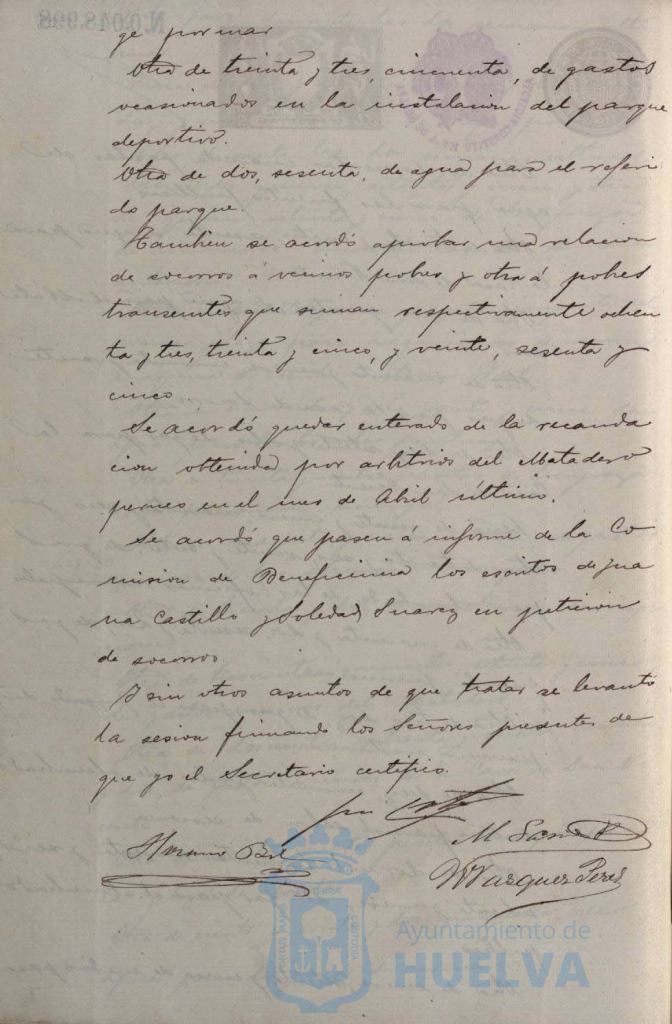 Nº 0.048.998
ge por mar
Otra de treinta y tres, cincuenta, de gastos
ocasionados en la instalacion del parque
deportivo.
Otra de dos, sesenta, de agua para el referi
do parque.
Tambien se acordó aprobar una relacion
de socorros á vecinos pobres y otra á pobres
transeuntes que suman respectivamente ochen
ta y tres, treinta y cinco, y veinte, sesenta y
cinco.
Se acordó quedar enterado de la recauda
cion obtenida por arbitrios del Matadero
en el mes de Abril último.
Se acordó que pasen á informe de la Co
mision de Beneficencia los escritos de Jua
na Castillo y Soledad Suarez en peticion
de socorros.
Y sin otros asuntos de que tratar se levantó
la sesion firmando los Señores presentes de
que yo el Secretario certifico.
M
Vazquez Perez
PORTUS MARIS
ET TERRAE
CUSTODIA
Ayuntamiento de
HUELVA